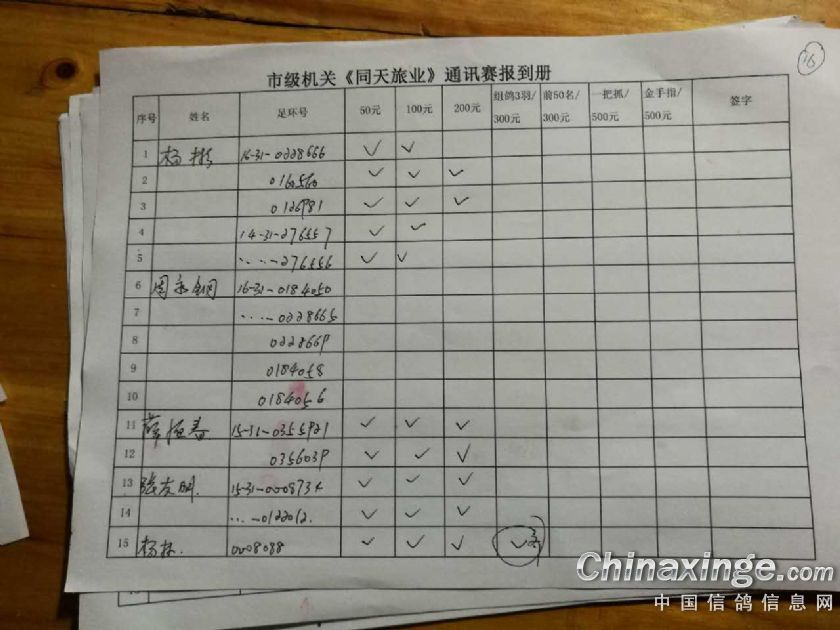 16
市级机关《同天旅业》通讯赛报到册
序号 姓名 足环号 50元 100元 200元 组鸽3羽/300元 前50名/300元 一把抓/500元 金手指/500元 签字
1 杨彬 16-31-0228666 ✓ ✓
2 0160560 ✓ ✓ ✓
3 0126981 ✓ ✓ ✓
4 14-31-276557 ✓ ✓
5 ‥‥-276556 ✓ ✓
6 周永钢 16-31-0184050
7 ‥‥-0228665
8 0228669
9 0184058
10 0184056
11 薛恒春 15-11-0355921 ✓ ✓ ✓
12 0356039 ✓ ✓ ✓
13 张友明. 15-31-0008734 ✓ ✓ ✓
14 ‥‥-0122012. ✓ ✓ ✓
15 杨林. 0008088 ✓ ✓ ✓ ✓
Chinaxinge.com
中国信鸽信息网